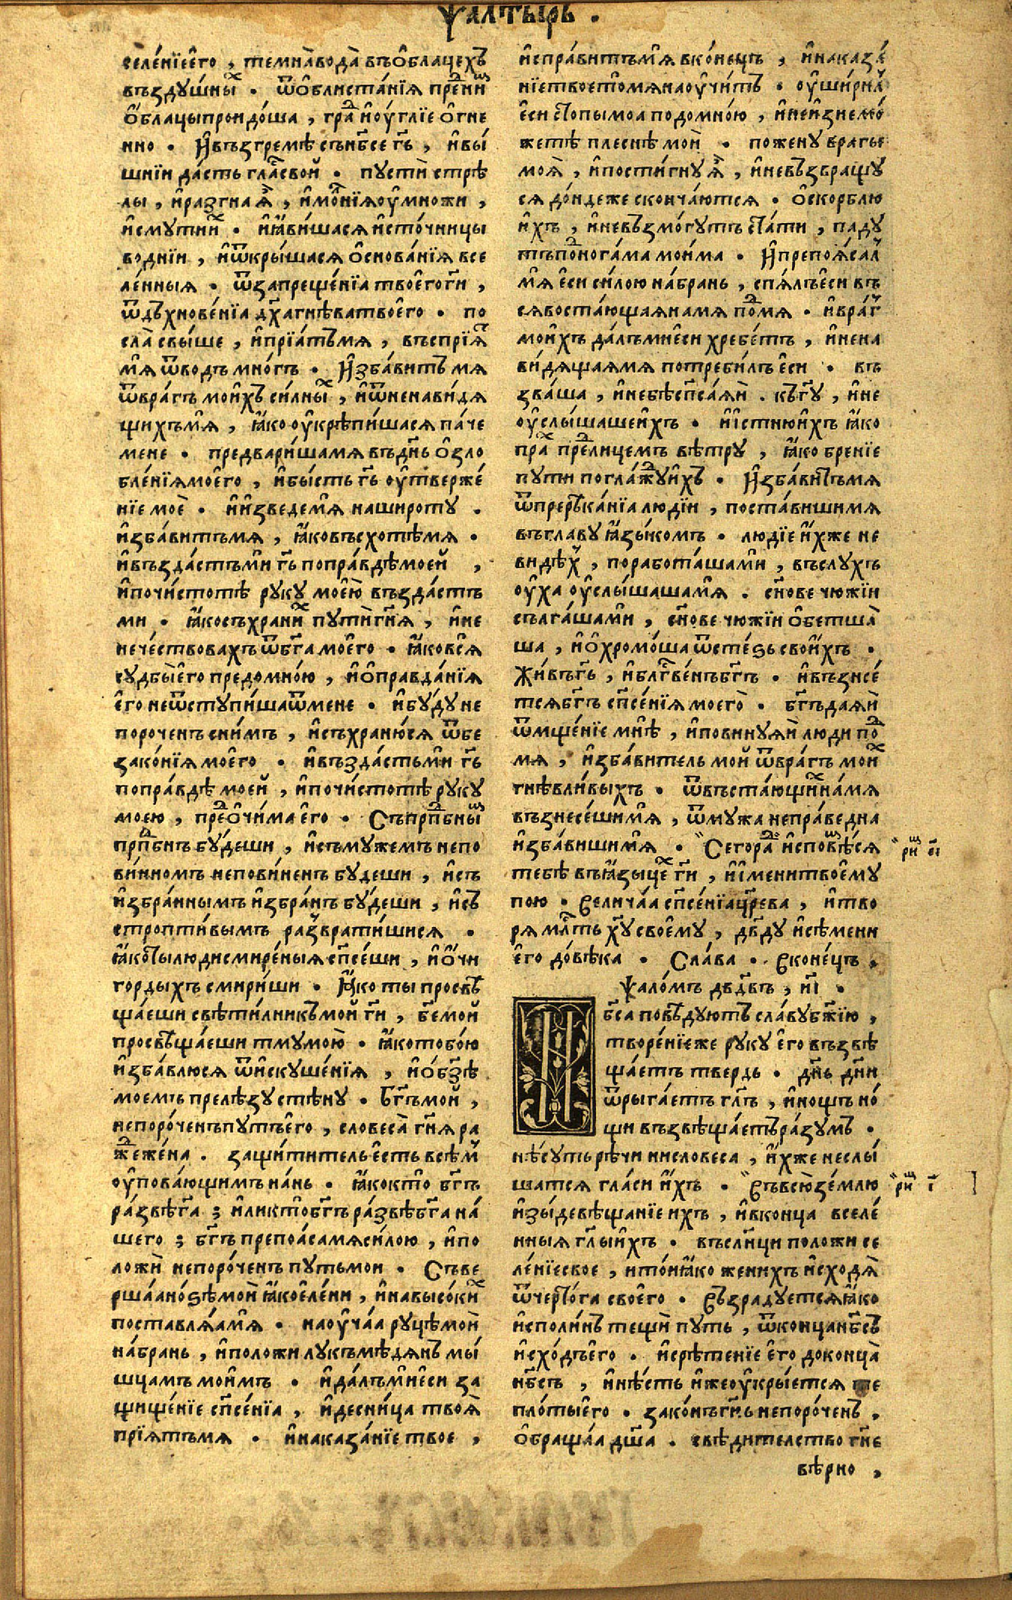 ѱалтырь .
селе́нїеего̀ , темна̀вода̀ въѻ҆блацехъ
въздꙋ́шныⷯ . ѿѻ҆блиста́нїѧ преⷣниⷨ
ѻ҆́блацыпроидо́ша , граⷣ и҆ѹ҆́глїе о҆́гне
нно . И҆възгремѣ̀ сънб҃се гь҃ , и҆вы́
шнїи да́сть гла́свои̑ . пꙋстѝ стрѣ
лы , и҆разгнаѧ̀ , и҆мо́лнїѧѹ҆мно́жи ,
и҆смꙋтиѝⷯ . и҆ꙗ҆ви́шасѧ и҆сто́чницы
во́днїи , и҆ѿкры́шасѧ ѻ҆снова́нїѧ все
ле́нныѧ . ѿзапреще́нїа твоегѻ̀ ги҃ ,
ѿдъхнове́нїа дх҃агнѣ́ватвоегѻ̀ . по
сла̀ свы́ше , и҆прїѧ́тъмѧ , въспрїѧ́ⷮ
мѧ̀ ѿво́дъ мно́гъ . И҆зба́витъ мѧ
ѿвра́гъ мои́хъ си́лныⷯ , и҆ѿненави́дѧ
щихъмѧ , ꙗ҆́ко ѹ҆крѣпи́шасѧ па́че
мене . предвари́шамѧ въдн҃ь ѻ҆зло
бле́нїѧмоегѻ̀ , и҆бы́сть гь҃ ѹ҆твержѐ
нїе моѐ . и҆и҆зведе́мѧ наширотꙋ .
и҆зба́витъмѧ , ꙗ҆́ковъсхотѣ́мѧ .
и҆възда́стъми гь҃ попра́вдѣмое́и ,
и҆почистотѣ̀ рꙋкꙋ̀ мое́ю възда́стъ
ми . ꙗ҆́косъхраниⷯ пꙋтѝ гн҃ѧ , и҆не
нече́ствовахъ ѿбг҃а моегѻ̀ . ꙗ҆́ковсѧ̀
сꙋдбы̀ е҆гѻ̀ предомно́ю , и҆ѻ҆правда́нїѧ
е҆гѻ̀ неѿстꙋпи́шаѿмене . и҆бꙋ́дꙋ не
поро́ченъ сни́мъ , и҆съхраню́сѧ ѿбе
зако́нїѧ моегѻ̀ . и҆възда́стъми гь҃
попра́вдѣ мое́и , и҆почистотѣ̀ рꙋкꙋ̀
моею , преⷣо҆чи́ма е҆гѻ̀ . Съпрпⷣбныⷨ
прпⷣбнъ бꙋ́деши , и҆съмꙋ́жемъ непо
ви́нномъ непови́ненъ бꙋ́деши , и҆съ
и҆збра́ннымъ и҆збра́нъ бꙋ́деши , и҆съ
стропти́вымъ развратишисѧ .
ꙗ҆́котылю́дисмире́нныѧ сп҃се́ши , и҆ѻ҆́чи
го́рдыхъ смири́ши . ꙗ҆́ко ты просвѣ
ща́еши свѣти́лникъ мо́и ги҃ , бж҃е мо́и
просвѣща́еши тмꙋ мою̀ . ꙗ҆́котобо́ю
и҆зба́влюсѧ ѿи҆скꙋше́нїѧ , и҆ѻ҆бз҃ѣ
мое́мъ прелѣ́зꙋ стѣ́нꙋ . бг҃ъмо́и ,
непоро́ченъ пꙋ́тъегѻ̀ , словеса̀ гн҃ѧ ра
жⷣеже́на . защи́титель е҆́сть всѣ́мъ
ѹ҆пова́ющимъ на́нь . ꙗ҆́кокто̀ бг҃ъ
ра́звѣгⷭ҇а ; и҆ликтѻ̀бг҃ъ ра́звѣбг҃а на́
шего ; бг҃ъ препоа́самѧси́лою , и҆по
ложѝ непоро́ченъ пꙋть мои . Съве
рша́а но́ѕѣ моѝ ꙗ҆́коеле́ни , и҆навысо́киⷯ
поставлѧ́амѧ . наѹ҆ча́а рꙋцѣ мо́и
на́брань , и҆положѝ лꙋкъ мѣ́дѧнъ мы́
шцамъ мои́мъ . и҆да́лъмѝ е҆си за
щище́нїе сп҃се́нїа , и҆десни́ца твоѧ̀
прїѧ́тъмѧ . и҆наказа́нїе твое ,
и҆спра́витъмѧ вконе́цъ , и҆наказа́
нїетвоетомѧнаѹ҆чи́тъ . ѹ҆шири́лъ
е҆си̑ стопы́моа подомно́ю , и҆неи҆знемо́
жетѣ плеснѣ̀ моѝ . пожену врагы
моѧ̀ , и҆пости́гнꙋ ѧ҆̀ , и҆невъзвращꙋ
сѧ до́ндеже сконча́ютсѧ . ѻ҆скорблю̀
и҆́хъ , и҆невъзмо́гꙋтъ ста́ти , падꙋ
тъпоⷣнога́ма мои́ма . И҆препоѧ́салъ
мѧ̀ е҆си си́лою на́брань , спѧ́лъ е҆си въ
сѧвостаю́щаѧнамѧ поⷣмѧ . и҆враⷢ҇
мои́хъ да́лъмиеси хребе́тъ , и҆нена
ви́дѧщаѧмѧ потреби́лъ е҆си . въ
зва́ша , и҆небѣ̀ сп҃саѧ́и . къгⷭ҇ꙋ , и҆не
ѹ҆слы́шашеи́хъ . и҆и҆стню̀и́хъ ꙗ҆́ко
праⷯ преⷣлице́мъ вѣ́трꙋ , ꙗ҆́ко бре́нїе
пꙋти погла́жⷣꙋи́хъ . И҆зба́витъмѧ
ѿпререка́нїа людїи , поста́вишимѧ
въглавꙋ̀ ꙗ҆зы́комъ . лю́дїе и҆́хже не
ви́дѣⷯ , порабо́ташами , въслꙋ́хъ
ѹ҆́ха ѹ҆слы́шашамѧ . сн҃ове чюжїи
сълга́шамѝ , сн҃ове чю́жїи ѻ҆бетша̀
ша , и҆ѻ҆хромо́ша ѿсте́ѕь свои́хъ .
Жи́въгь҃ , и҆блⷭ҇ве́нъбг҃ъ . и҆възнесѐ
тсѧбг҃ъ сп҃се́нїѧ моегѻ̀ . бг҃ъдаѧ́и
ѿмще́нїе мнѣ̀ , и҆повинꙋѧ́и лю́ди поⷣ
мѧ , и҆зба́витель мо́и ѿвра́гъ моиⷯ
гнѣвли́выхъ . ѿвъстаю́щиⷯ намѧ
възнесе́шимѧ , ѿмꙋ́жа непра́ведна
и҆зба́вишимѧ . Сегора́ⷣ и҆сповѣ́мсѧ
тебѣ̀ въꙗ҆зы́цеⷯ ги҃ , и҆и҆́менитвоемꙋ
пою . велича́а сп҃се́нїацр҃ева , и҆тво
рѧ млⷭ҇ть хꙋ҃ своемꙋ̀ , дв҃дꙋ и҆сѣ́мени
е҆гѻ̀ до́вѣка . Сла́ва . вконе́цъ .
Ѱало́мъ дв҃двъ , и҃і .
Нб҃са повѣ́дꙋютъ сла́вꙋбж҃їю ,
творе́нїеже рꙋкꙋ̀ е҆гѻ̀ възвѣ
ща́етъ твердь . дн҃ь дн҃и
ѿрыга́етъ гл҃ъ , и҆но́щь но́
щи възвѣща́етъра́зꙋмъ .
не́сꙋть рѣ́чи нисловеса , и҆́хже неслы́
шатсѧ гла́си и҆́хъ . Въвсю̀зе́млю
и҆зы́девѣща́нїе ихъ , и҆вконца вселе́
нныѧ гл҃ы и҆́хъ . въсл҃нци положѝ се
ле́нїе свое , и҆то́и ꙗ҆́ко жени́хъ и҆сходѧ̀
ѿчерто́га своего . Възра́дꙋетсѧꙗ҆́ко
и҆споли́нъ тещѝ пꙋть , ѿконцанб҃съ
и҆схо́дъегѻ̀ . и҆срѣ́тенїе е҆гѻ̀ доконца̀
нб҃съ , и҆нѣ́сть и҆́жеѹ҆кры́етсѧ те
плоты̀ е҆гѻ̀ . зако́нъ гн҃ь непоро́ченъ .
ѻ҆браща́а дш҃а . свѣдѣ́телство гн҃е
вѣ́рно ,